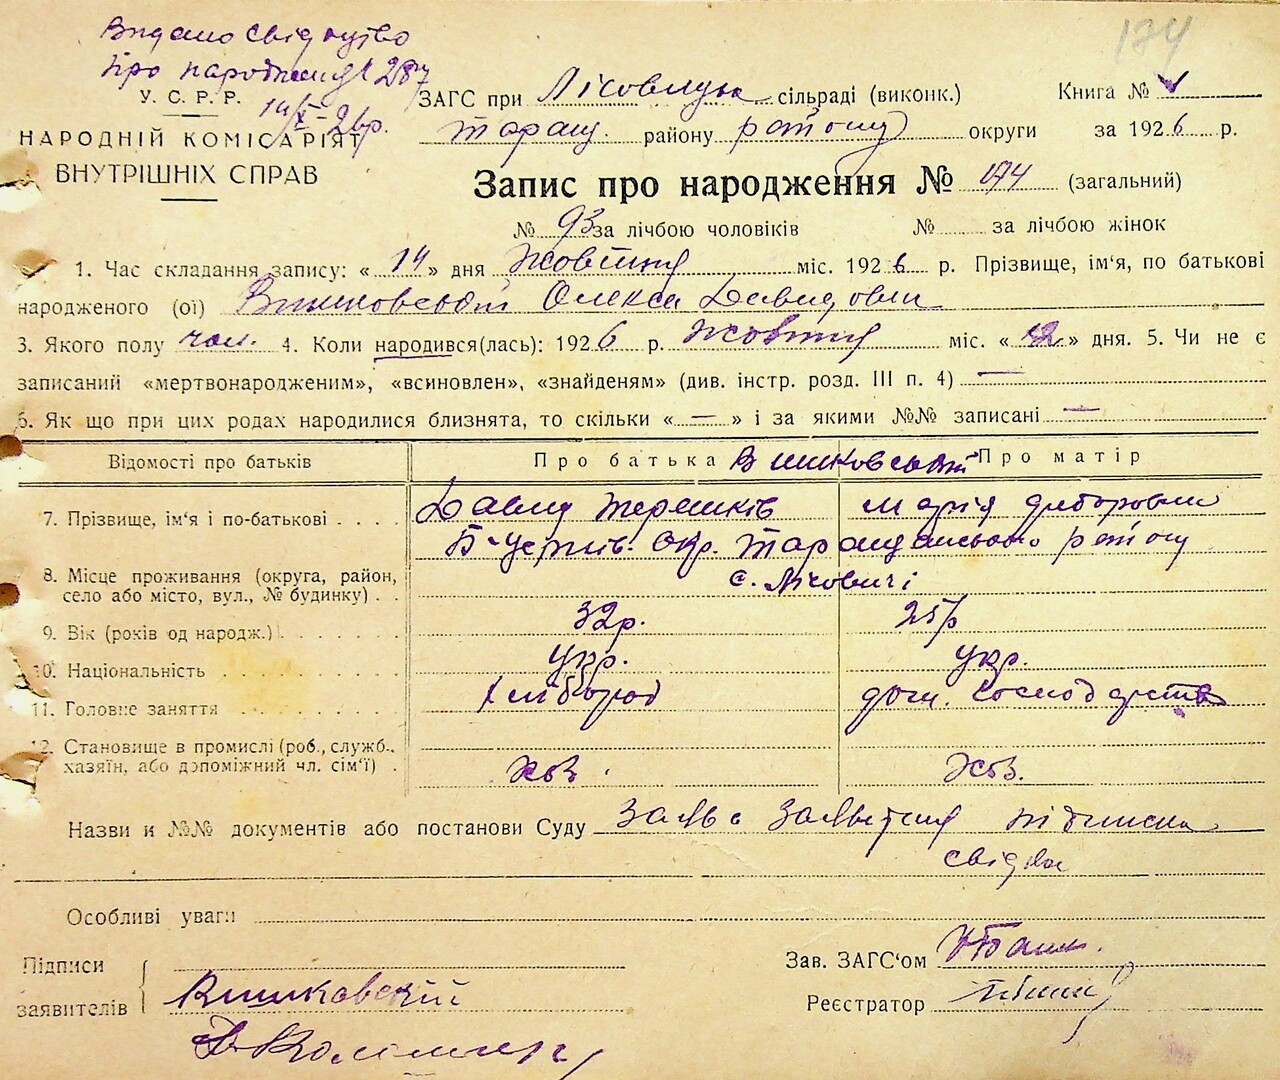 Видано свідоцтво
про народження 287
14/X-26р.
174
У. С. Р. Р.
НАРОДНІЙ КОМІСАРІЯТ
ВНУТРІШНІХ СПРАВ
ЗАГС при сільраді (виконк.) Книга № V
Таращ. району округи за 1926 р.
Запис про народження № 174 (загальний)
№ 93 за лічбою чоловіків № за лічбою жінок
1. Час складання запису: «14» дня Жовтня міс. 1926 р. Прізвище, ім'я, по батькові
народженого (ої) Вишковський Олекса Давидович
3. Якого полу чол. 4. Коли народився(лась): 1926 р. Жовтня міс. «12» дня. 5. Чи не є
записаний «мертвонародженим», «всиновлен», «знайденям» (див. інстр. розд. III п. 4) —
6. Як що при цих родах народилися близнята, то скільки «—» і за якими №№ записані —
Відомості про батьків Про батька Вишковський Про матір
7. Прізвище, ім'я і по-батькові Давид Терешків Марія
Б-Церків. Окр. Таращанського району
8. Місце проживання (округа, район,
село або місто, вул., № будинку) с. Лісовичі
9. Вік (років од народж.) 32р. 25р
10. Національність укр. укр.
11. Головне заняття хлібороб дом. господарство
12. Становище в промислі (роб., служб.,
хазяїн, або допоміжний чл. сім'ї) хоз. хоз.
Назви и №№ документів або постанови Суду Заява підписка
свідків
Особливі уваги
Підписи
заявителів Вишковский
Зав. ЗАГС'ом
Реєстратор